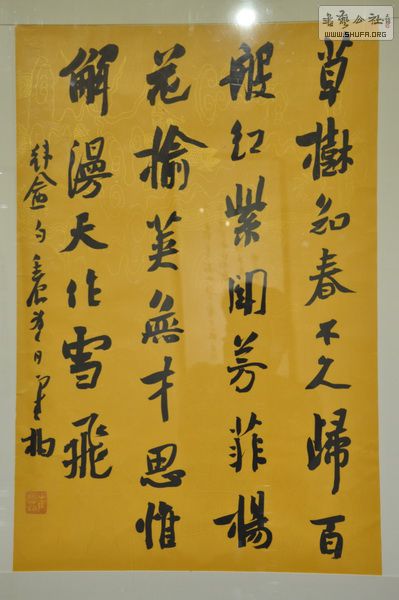 草樹知春不久歸百
般紅紫闘芳菲楊
花榆莢無才思惟
解漫天作雪飛
韓愈句壬辰日
書藝公社
WWW.SHUFA.ORG